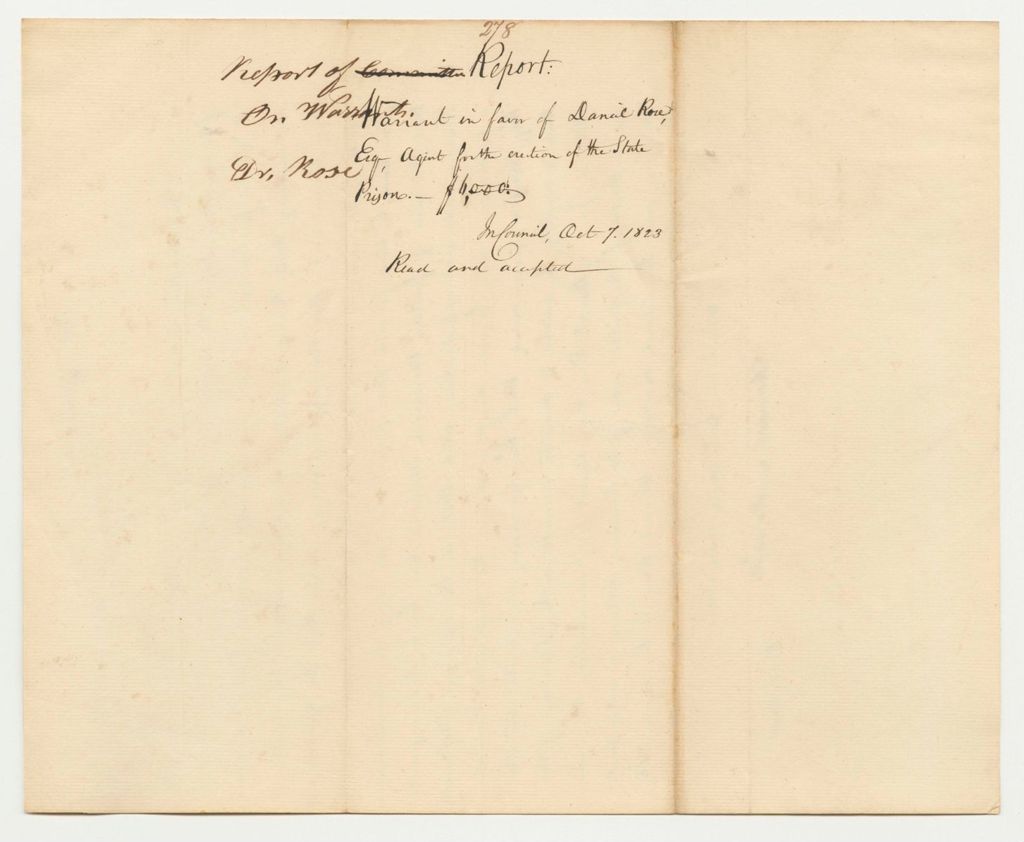 278
Report of Committee Report:
On Warrants.
Warrant in favor of Daniel Rose,
Dr. Rose
Esq, Agent for the erection of the State
Prison. — $6,000.
In Council, Oct 7. 1823
Read and accepted